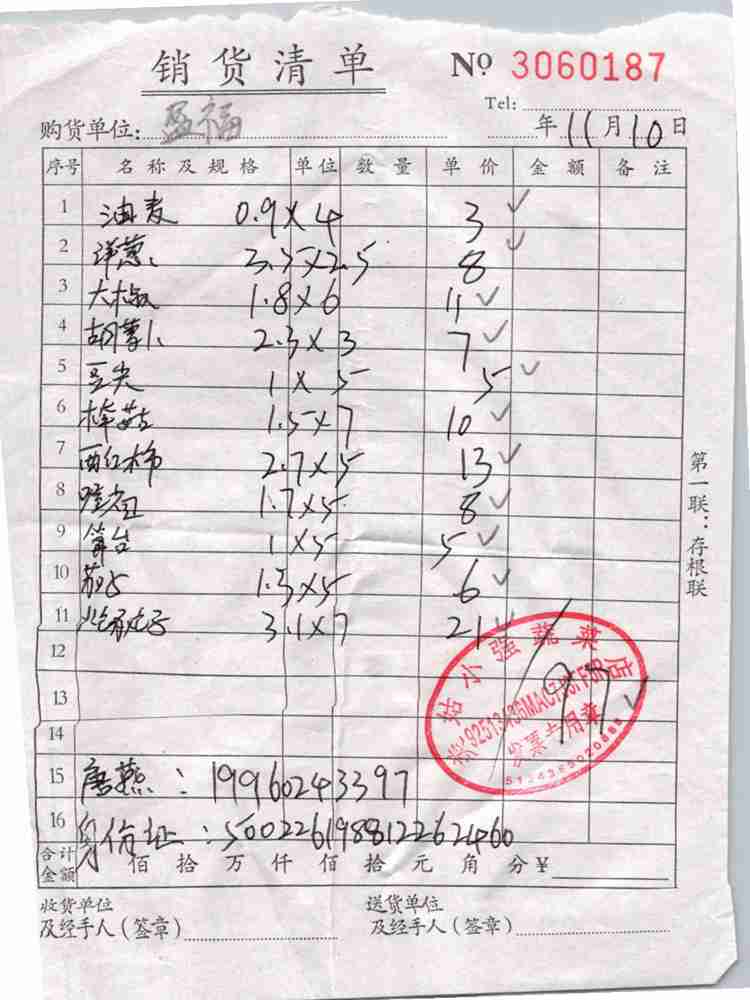 销货清单 Nº 3060187
Tel:
购货单位: 盈福 年 11 月 10 日
序号 名称及规格 单位 数量 单价 金额 备注
1 油麦 0.9×4 3 ✓
2 洋葱 3.5×2.5 8 ✓
3 大椒 1.8×6 11 ✓
4 胡萝卜 2.3×3 7 ✓
5 豆尖 1×5 5 ✓
6 1.5×7 10 ✓
7 西红柿 2.7×5 13 ✓
8 1.7×5 8 ✓
9 1×5 5 ✓
10 茄子 1.3×5 6 ✓
11 3.1×7 21 ✓
12
13
14
97
小强蔬菜店
发票专用章
15 唐燕: 19960243397
16 身份证: 500226198812262460
合计金额 佰 拾 万 仟 佰 拾 元 角 分 ¥
收货单位 送货单位
及经手人(签章) 及经手人(签章)
第一联:存根联